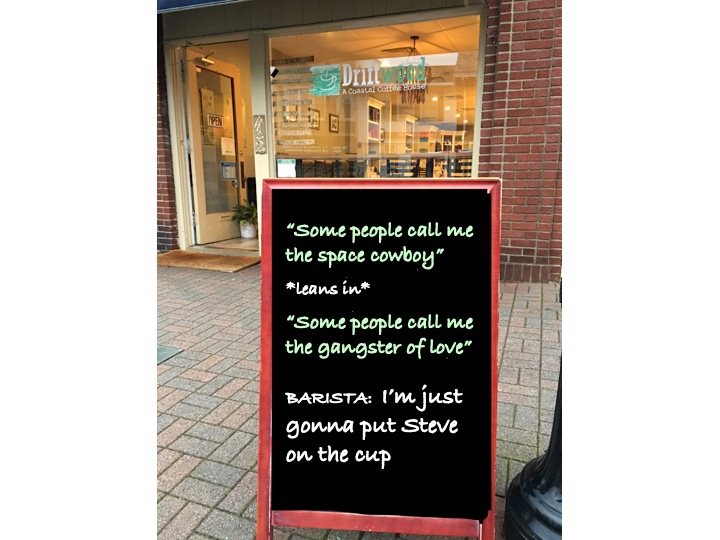 Driftwood
A Coastal Coffee House
OPEN
“Some people call me
the space cowboy”
*leans in*
“Some people call me
the gangster of love”
BARISTA: I’m just
gonna put Steve
on the cup